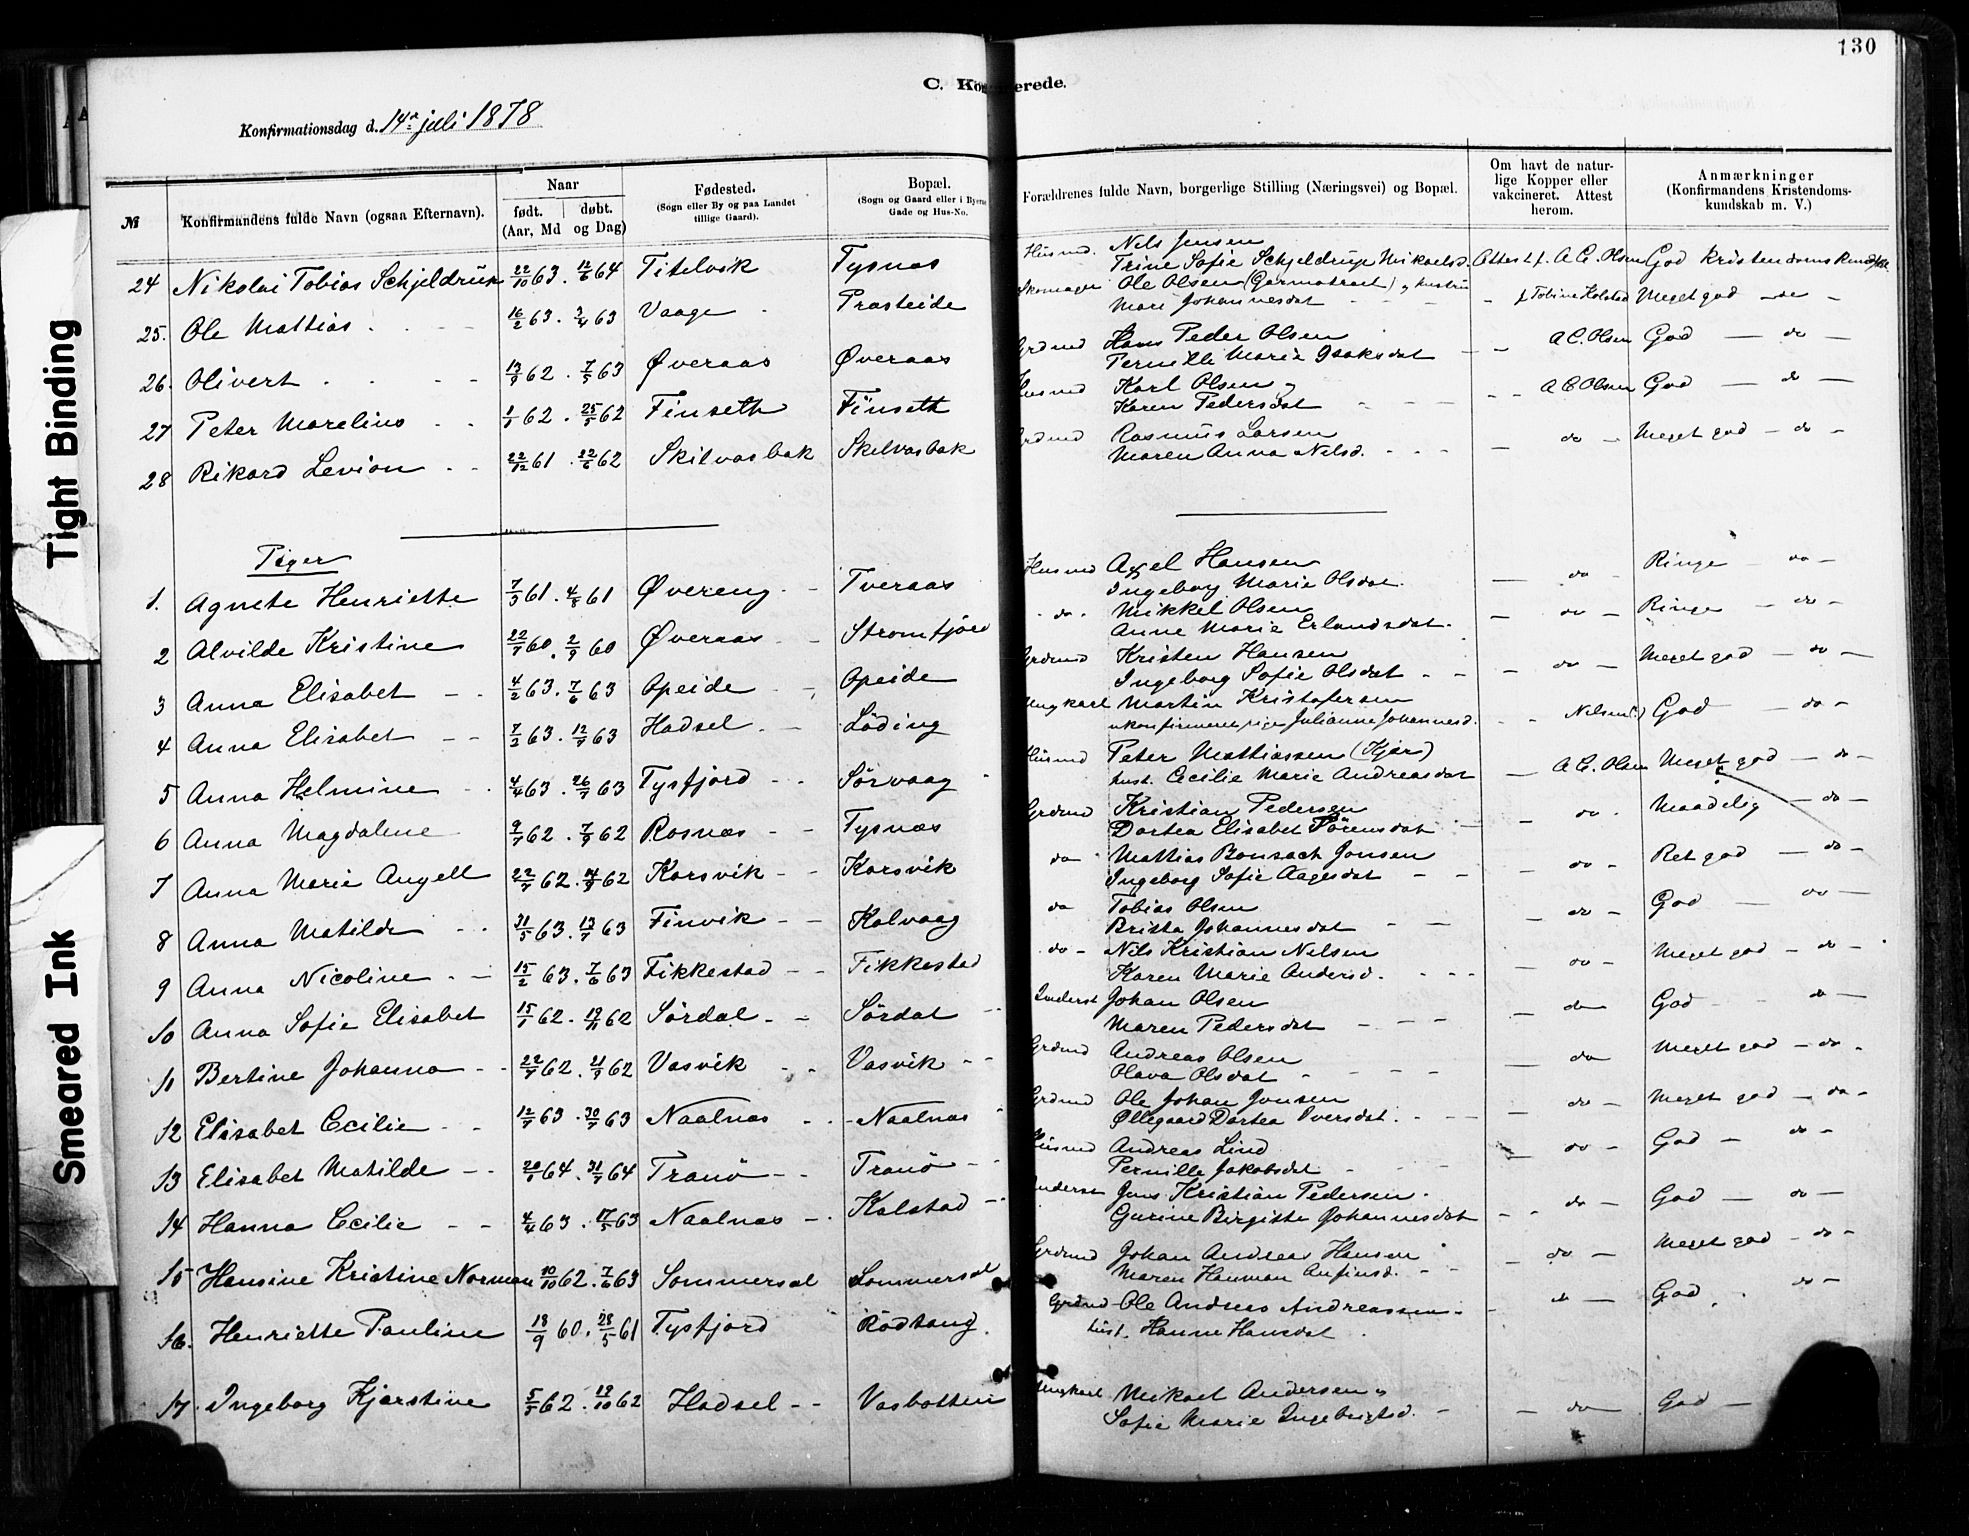 130
C. Konfirmerede.
Konfirmationsdag d. 14de juli 1878
№ Konfirmandens fulde Navn (ogsaa Efternavn). Naar født. døbt. (Aar, Md og Dag) Fødested. (Sogn eller By og paa Landet tillige Gaard). Bopæl. (Sogn og Gaard eller i Byerne Gade og Hus-No. Forældrenes fulde Navn, borgerlige Stilling (Næringsvei) og Bopæl. Om havt de naturlige Kopper eller vakcineret. Attest herom. Anmærkninger (Konfirmandens Kristendomskundskab m. V.)
24 Nikolai Tobias Schjeldrup 22/10 63. 12/6 64 Titelvik Tysnæs Husmd. Nils Jensen
Trine Sofie Schjeldrup Mikaelsd. Attest f. A C. Olsen God Kristendomskundsk
25. Ole Mattias 16/2 63. 3/4 63 Vaage Præsteide Skomager Ole Olsen (Germatræet) og hustru
Mari Johannesdat f Tobine Kolstad Meget god - do -
26. Olivert 13/9 62. 7/5 63 Øveraas Øveraas Grdmd Hans Peder Olsen
Pernille Marie Isaksdat A C. Olsen God - do -
27 Peter Marelius 1/1 62. 25/5 62 Finseth Finseth Husmd Karl Olsen og
Karen Pedersdat A C Olsen God - do -
28 Rikard Levion 22/12 61. 22/6 62 Skilvasbak Skelvasbak Grdmd Rasmus Larsen
Maren Anna Nelsd. - do - Meget god - do -
Piger
1. Agnete Henriette 7/3 61. 4/8 61 Øvereng Tveraas Husmd Axel Hansen
Ingeborg Marie Olsdat. - do - Ringe - do -
2 Alvilde Kristine 22/7 60. 2/9 60 Øveraas Stromfjord - do - Mikkel Olsen
Anne Marie Erlandsdat. - do - Ringe - do -
3 Anna Elisabet 4/2 63. 7/6 63 Opeide Opeide Grdmd Kristen Hansen
Ingeborg Sofie Olsdat - do - Meget god - do -
4 Anna Elisabet 7/2 63. 12/7 63 Hadsel Löding Ungkarl Martin Kristofersen
ukonfirmeret pige Julianne Johannesd. Nilsen God - do -
5 Anna Helmine 4/4 63. 26/7 63 Tysfjord Sörvaag Husmd Peter Mattiassen (Kjær)
hust. Cecilie Marie Andreasdat - A C. Olsen Meget god - do -
6 Anna Magdalene 9/7 62. 7/9 62 Rosnæs Tysnæs Grdmd Kristian Pedersen
Dortea Elisabet Sörensdat - do - Maadelig - do -
7 Anna Marie Angell 22/7 62. 14/9 62 Korsvik Korsvik do Mattias Bonsach Jonsen
Ingeborg Sofie Aagesdat - do - Ret god - do -
8 Anna Matilde 31/5 63. 13/7 63 Finvik Kalvaag do Tobias Olsen
Britta Johannesdat - do - God - do -
9 Anna Nicoline 15/2 63. 7/6 63 Fikkestad Fikkestad do - Nils Kristian Nelsen
Karen Marie Andersd. - do - Meget god - do -
10 Anna Sofie Elisabet 15/1 62. 19/11 62 Sördal Sördal Inderst Johan Olsen
Maren Pedersdat - do God do -
11 Bertine Johanna 22/7 62. 21/9 62 Vasvik Vasvik Grdmd Andreas Olsen
Olava Olsdat - do Meget god - do -
12 Elisabet Cecilie 12/7 63. 30/7 63 Naalnæs Naalnæs Grdmd Ole Johan Jonsen
Øllegaard Dortea Iversdat. - do - Meget god - do -
13 Elisabet Matilde 20/1 64. 31/7 64 Tranö Tranö Husmd Andreas Lind
Pernille Jakobsdat - do - God - do -
14 Hanna Cecilie 4/4 63. 17/5 63 Naalnæs Kalstad Inderst Jens Kristian Pedersen
Gurine Birgitte Johannesdat - do - God - do -
15 Hansine Kristine Norman 10/10 62. 7/6 63 Sommersel Sommersel Grdmd Johan Andreas Hansen
Maren Hanman Anfinsd. - do - Meget god - do -
16. Henriette Pauline 18/9 60. 28/5 61 Tysfjord Rödtang Grdmd Ole Andreas Andreassen
hust. Hanne Hansdat - do - God do -
17. Ingeborg Kjerstine 5/5 62. 19/10 62 Hadsel Vasbotten Ungkarl Mikael Andersen og
Sofie Marie Ingebrigtsd. - do God -
Tight Binding
Smeared Ink